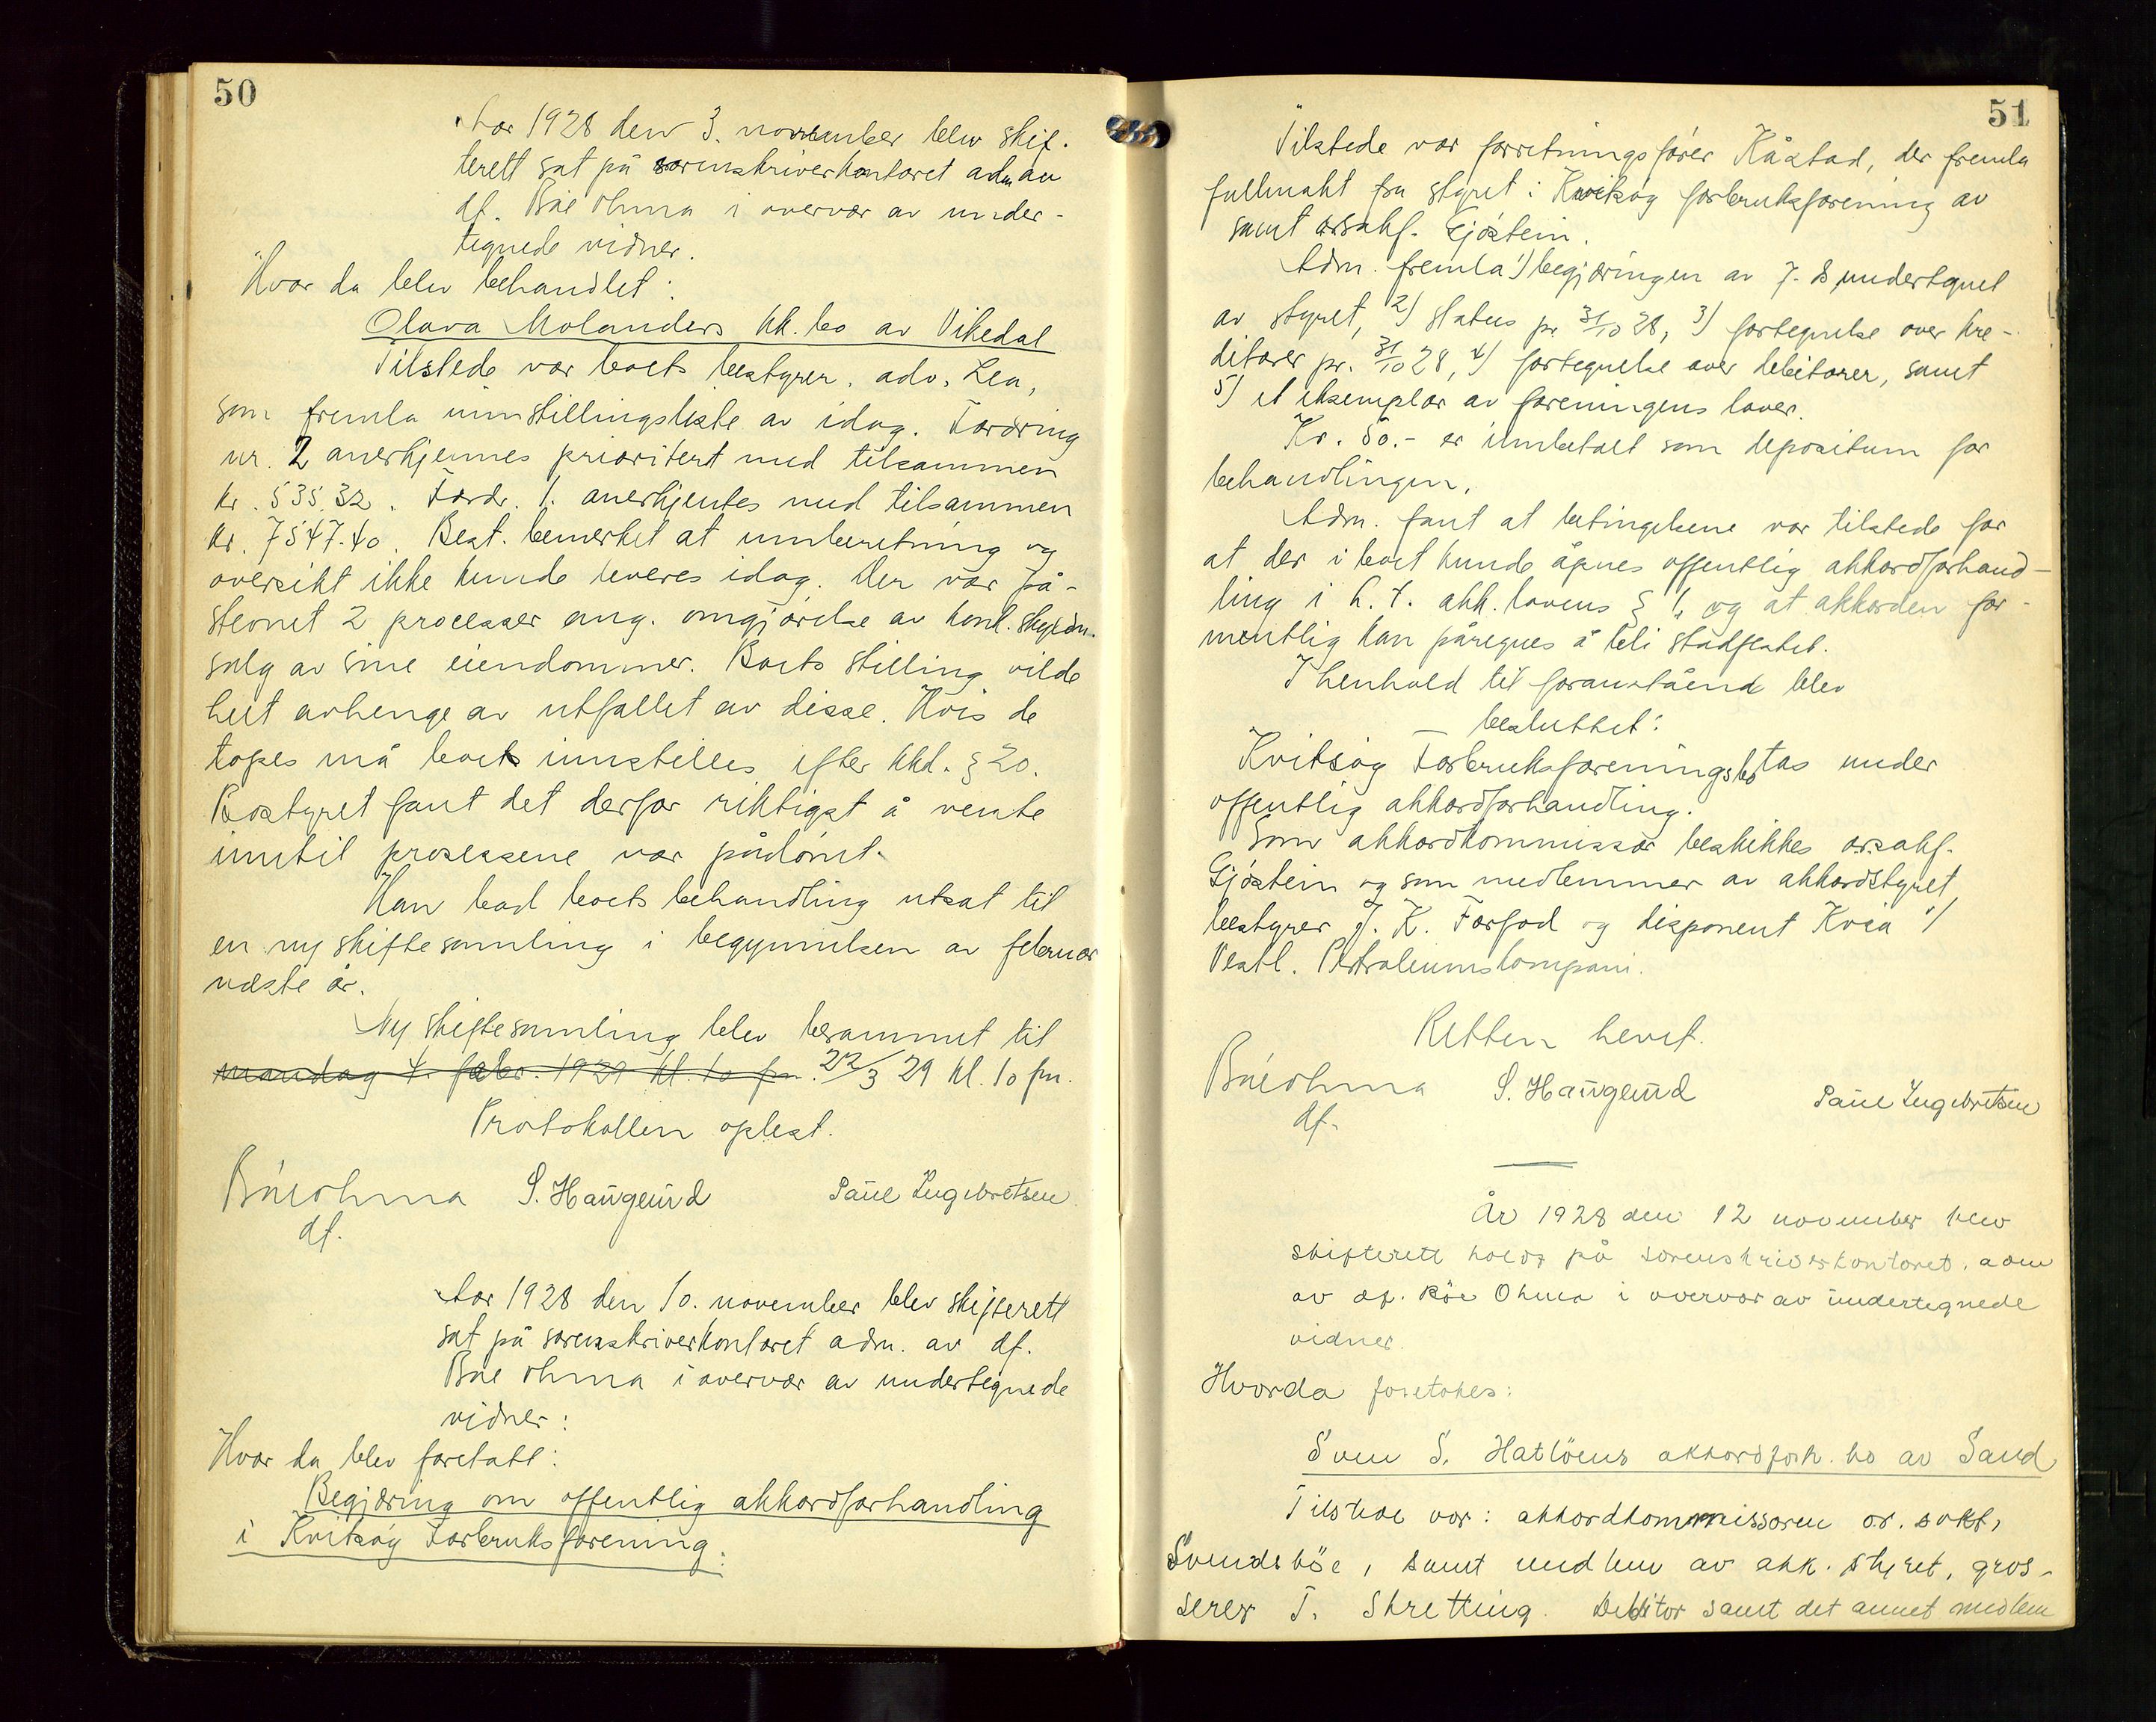 50
Aar 1928 den 3. november blev skif-
terett sat på sorenskriverkontoret adm av
df. Bøe Ohma i overvær av under-
tegnede vidner.
Hvor da blev behandlet:
Olava Molanders kk. bo av Vikedal
Tilstede var boets bestyrer, adv. Lea,
som fremla innstillingsliste av idag. Fordring
nr. 2 anerkjennes prioritert med tilsammen
kr. 535.32. Fordr. 1. anerkjentes med tilsammen
kr. 7547.40. Best. bemerket at innberetning og
oversikt ikke kunde leveres idag. Der var på-
stevnet 2 processer ang. omgjørelse av konk. skyldn.
salg av sine eiendommer. Boets stilling vilde
helt avhenge av utfallet av disse. Hvis de
tapes må boet innstilles efter kkl. § 20.
Bostyret fant det derfor riktigst å vente
inntil prosessene var pådømt.
Han bad boets behandling utsat til
en ny skiftesamling i begynnelsen av februar
næste år.
Ny skiftesamling blev berammet til
mandag 4. febr. 1929 kl. 10 fm. 22/3 29 kl. 10 fm.
Protokollen oplest.
Bøe Ohma S. Haugerud Paul Ingebretsen
df.
Aar 1928 den 10. november blev skifterett
sat på sorenskriverkontoret adm. av df.
Bøe Ohma i overvær av undertegnede
vidner:
Hvor da blev foretatt:
Begjæring om offentlig akkordforhandling
i Kvitsøy Forbruksforening.
51
Tilstede var forretningsfører Kåstad, der fremla
fullmakt fra styret i Kvitsøy forbruksforening av
samt orsakf. Gjøstein.
Adm. fremla 1) begjæringen av 7. ds undertegnet
av styret, 2) status pr 31/10 28, 3) fortegnelse over kre-
ditorer pr. 31/10 28, 4) fortegnelse over debitorer, samt
5) et eksemplar av foreningens lover.
Kr. 50.- er innbetalt som depositum for
behandlingen.
Adm. fant at betingelsene var tilstede for
at der i boet kunde åpnes offentlig akkordforhand-
ling i h. t. akk. lovens § 1, og at akkorden for-
mentlig kan påregnes å bli stadfestet.
I henhold til foranstående blev
besluttet:
Kvitsøy Forbruksforenings bo tas under
offentlig akkordforhandling.
Som akkordkommissær beskikkes orsakf.
Gjøstein og som medlemmer av akkordstyret
bestyrer J. K. Forfod og disponent Kvia i/
Vestl. Petroleumskompani.
Retten hevet.
Bøe Ohma S. Haugerud Paul Ingebretsen
df.
År 1928 den 12 november blev
skifterett holdt på sorenskriverkontoret, adm
av df. Bøe Ohma i overvær av undertegnede
vidner.
Hvorda foretokes:
Sven S. Hatløens akkordforh. bo av Sand
Tilstede var: akkordkommissæren or. sakf,
Svendsbøe, samt medlem av akk. styret, gros-
serer T. Skretting. Debitor samt det annet medlem